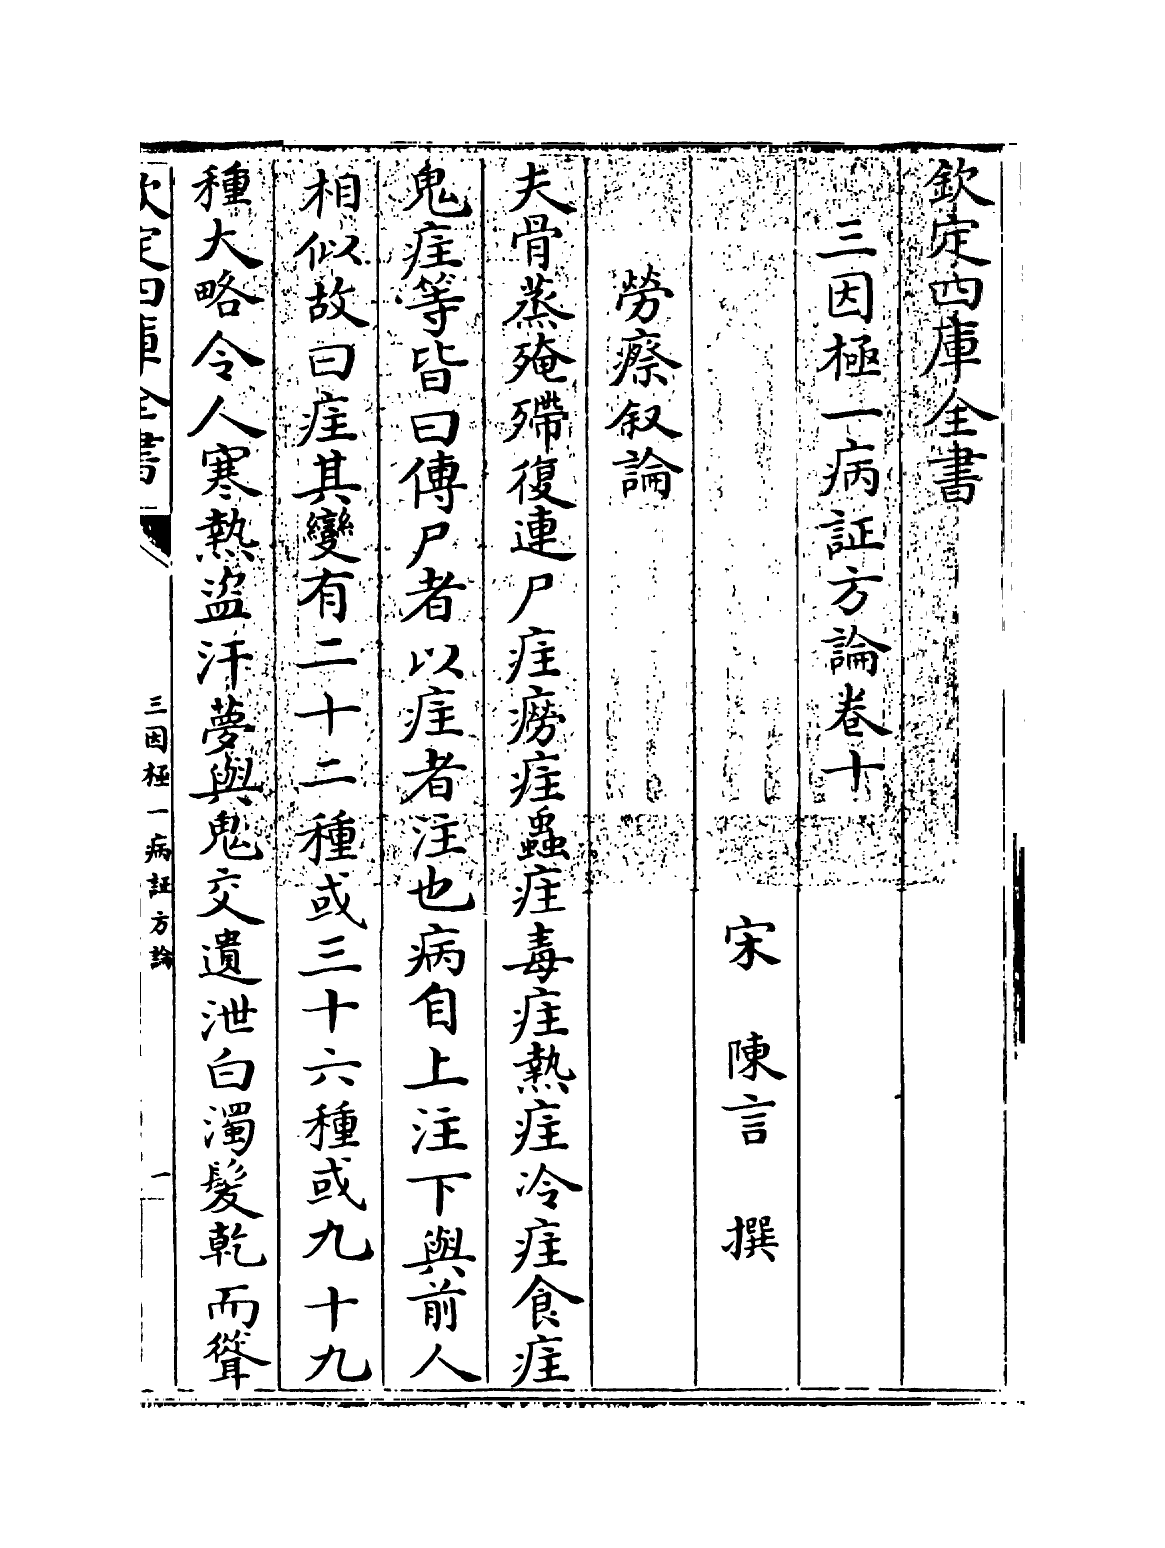 欽定四庫全書
三因極一病証方論卷十
宋 陳言 撰
勞瘵叙論
夫骨蒸殗殢復連尸疰癆疰蠱疰毒疰熱疰冷疰食疰
鬼疰等皆曰傳尸者以疰者注也病自上注下與前人
相似故曰疰其變有二十二種或三十六種或九十九
種大略令人寒熱盗汗夢與鬼交遺泄白濁髮乾而聳
欽定四庫全書
三因極一病証方論
一